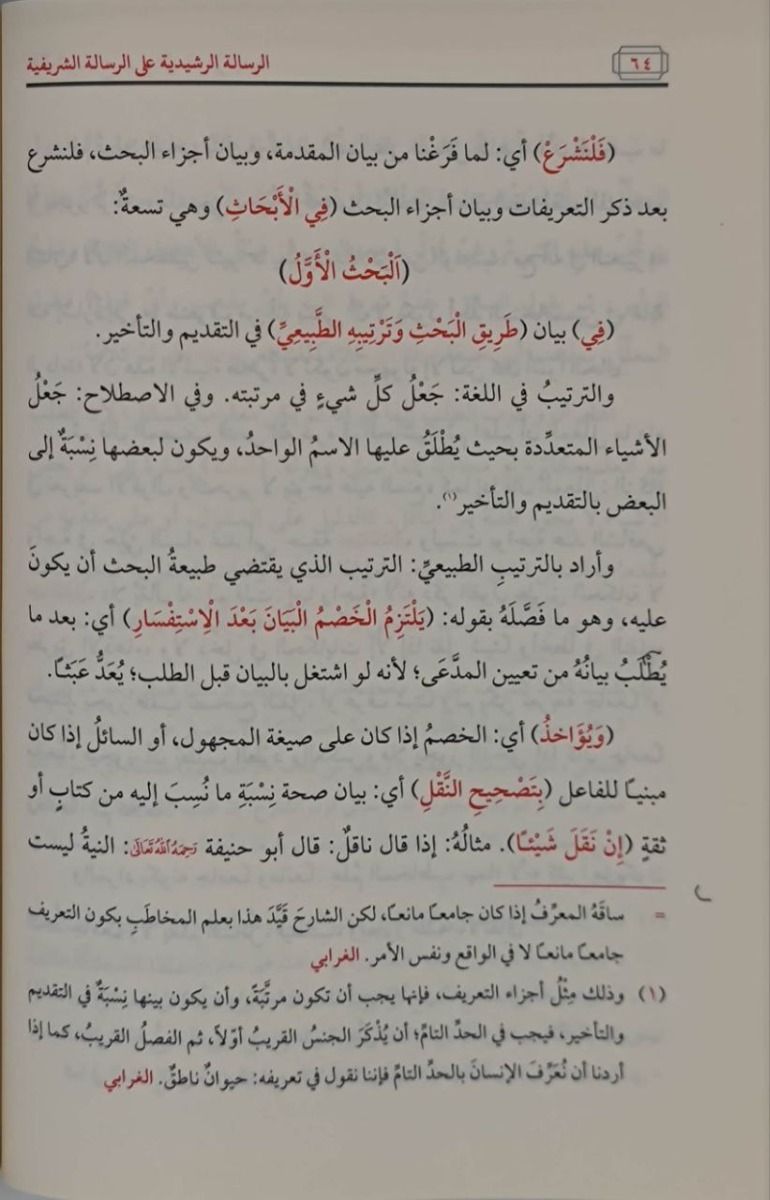 ٦٤
الرسالة الرشيدية على الرسالة الشريفية
(فَلْنَشْرَعْ) أي: لما فَرَغْنا من بيان المقدمة، وبيان أجزاء البحث، فلنشرع
بعد ذكر التعريفات وبيان أجزاء البحث (فِي الْأَبْحَاثِ) وهي تسعةٌ:
(اَلْبَحْثُ الْأَوَّلُ)
(فِي) بيان (طَرِيقِ الْبَحْثِ وَتَرْتِيبِهِ الطَّبِيعِيِّ) في التقديم والتأخير.
والترتيبُ في اللغة: جَعْلُ كلِّ شيءٍ في مرتبته. وفي الاصطلاح: جَعْلُ
الأشياء المتعدِّدة بحيث يُطْلَقُ عليها الاسمُ الواحدُ، ويكون لبعضها نِسْبَةٌ إلى
البعض بالتقديم والتأخير(١).
وأراد بالترتيبِ الطبيعيِّ: الترتيب الذي يقتضي طبيعةُ البحث أن يكونَ
عليه، وهو ما فَصَّلَهُ بقوله: (يَلْتَزِمُ الْخَصْمُ الْبَيَانَ بَعْدَ الْاِسْتِفْسَارِ) أي: بعد ما
يُطْلَبُ بيانُهُ من تعيين المدَّعَى؛ لأنه لو اشتغل بالبيان قبل الطلب؛ يُعَدُّ عَبَثًا.
(وَيُؤَاخَذُ) أي: الخصمُ إذا كان على صيغة المجهول، أو السائلُ إذا كان
مبنيًا للفاعل (بِتَصْحِيحِ النَّقْلِ) أي: بيان صحة نِسْبَةِ ما نُسِبَ إليه من كتابٍ أو
ثقةٍ (إِنْ نَقَلَ شَيْئًا). مثالُهُ: إذا قال ناقلٌ: قال أبو حنيفة رَحِمَهُ اللَّهُ تَعَالَى: النيةُ ليست
= ساقَهُ المعرِّفُ إذا كان جامعًا مانعًا، لكن الشارحَ قَيَّدَ هذا بعلم المخاطَبِ بكون التعريف
جامعًا مانعًا لا في الواقع ونفس الأمر. الغرابي
(١) وذلك مِثْلُ أجزاء التعريف، فإنها يجب أن تكون مرتَّبَةً، وأن يكون بينها نِسْبَةٌ في التقديم
والتأخير، فيجب في الحدِّ التامِّ؛ أن يُذْكَرَ الجنسُ القريبُ أوّلًا، ثم الفصلُ القريبُ، كما إذا
أردنا أن نُعَرِّفَ الإنسانَ بالحدِّ التامِّ فإننا نقول في تعريفه: حيوانٌ ناطقٌ. الغرابي